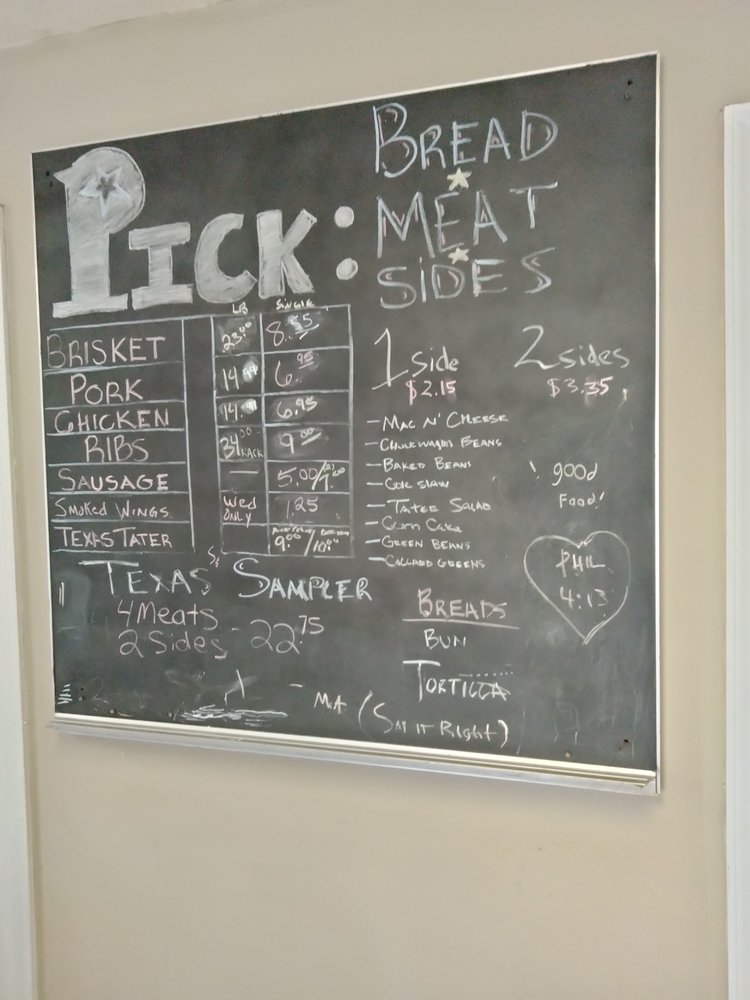 PICK:
BREAD
MEAT
SIDES
LB SINGLE
BRISKET 23.00 8.55
PORK 14.99 6.95
CHICKEN 14. 6.95
RIBS 34.00 RACK 9.00
SAUSAGE — 5.00/ 7.00
SMOKED WINGS Wed ONLY 1.25
TEXAS TATER 9.00/ 10.00
1 side
$2.15
2 sides
$3.35
- MAC N' CHEESE
- CHUCKWAGON BEANS
- BAKED BEANS
- COLE SLAW
- TATER SALAD
- CORN CAKE
- GREEN BEANS
- COLLARD GREENS
good
FOOD!
PHIL
4:13
TEXAS SAMPLER
4 Meats
2 Sides - 22.75
BREADS
BUN
TORTILLA
(SAY IT RIGHT)